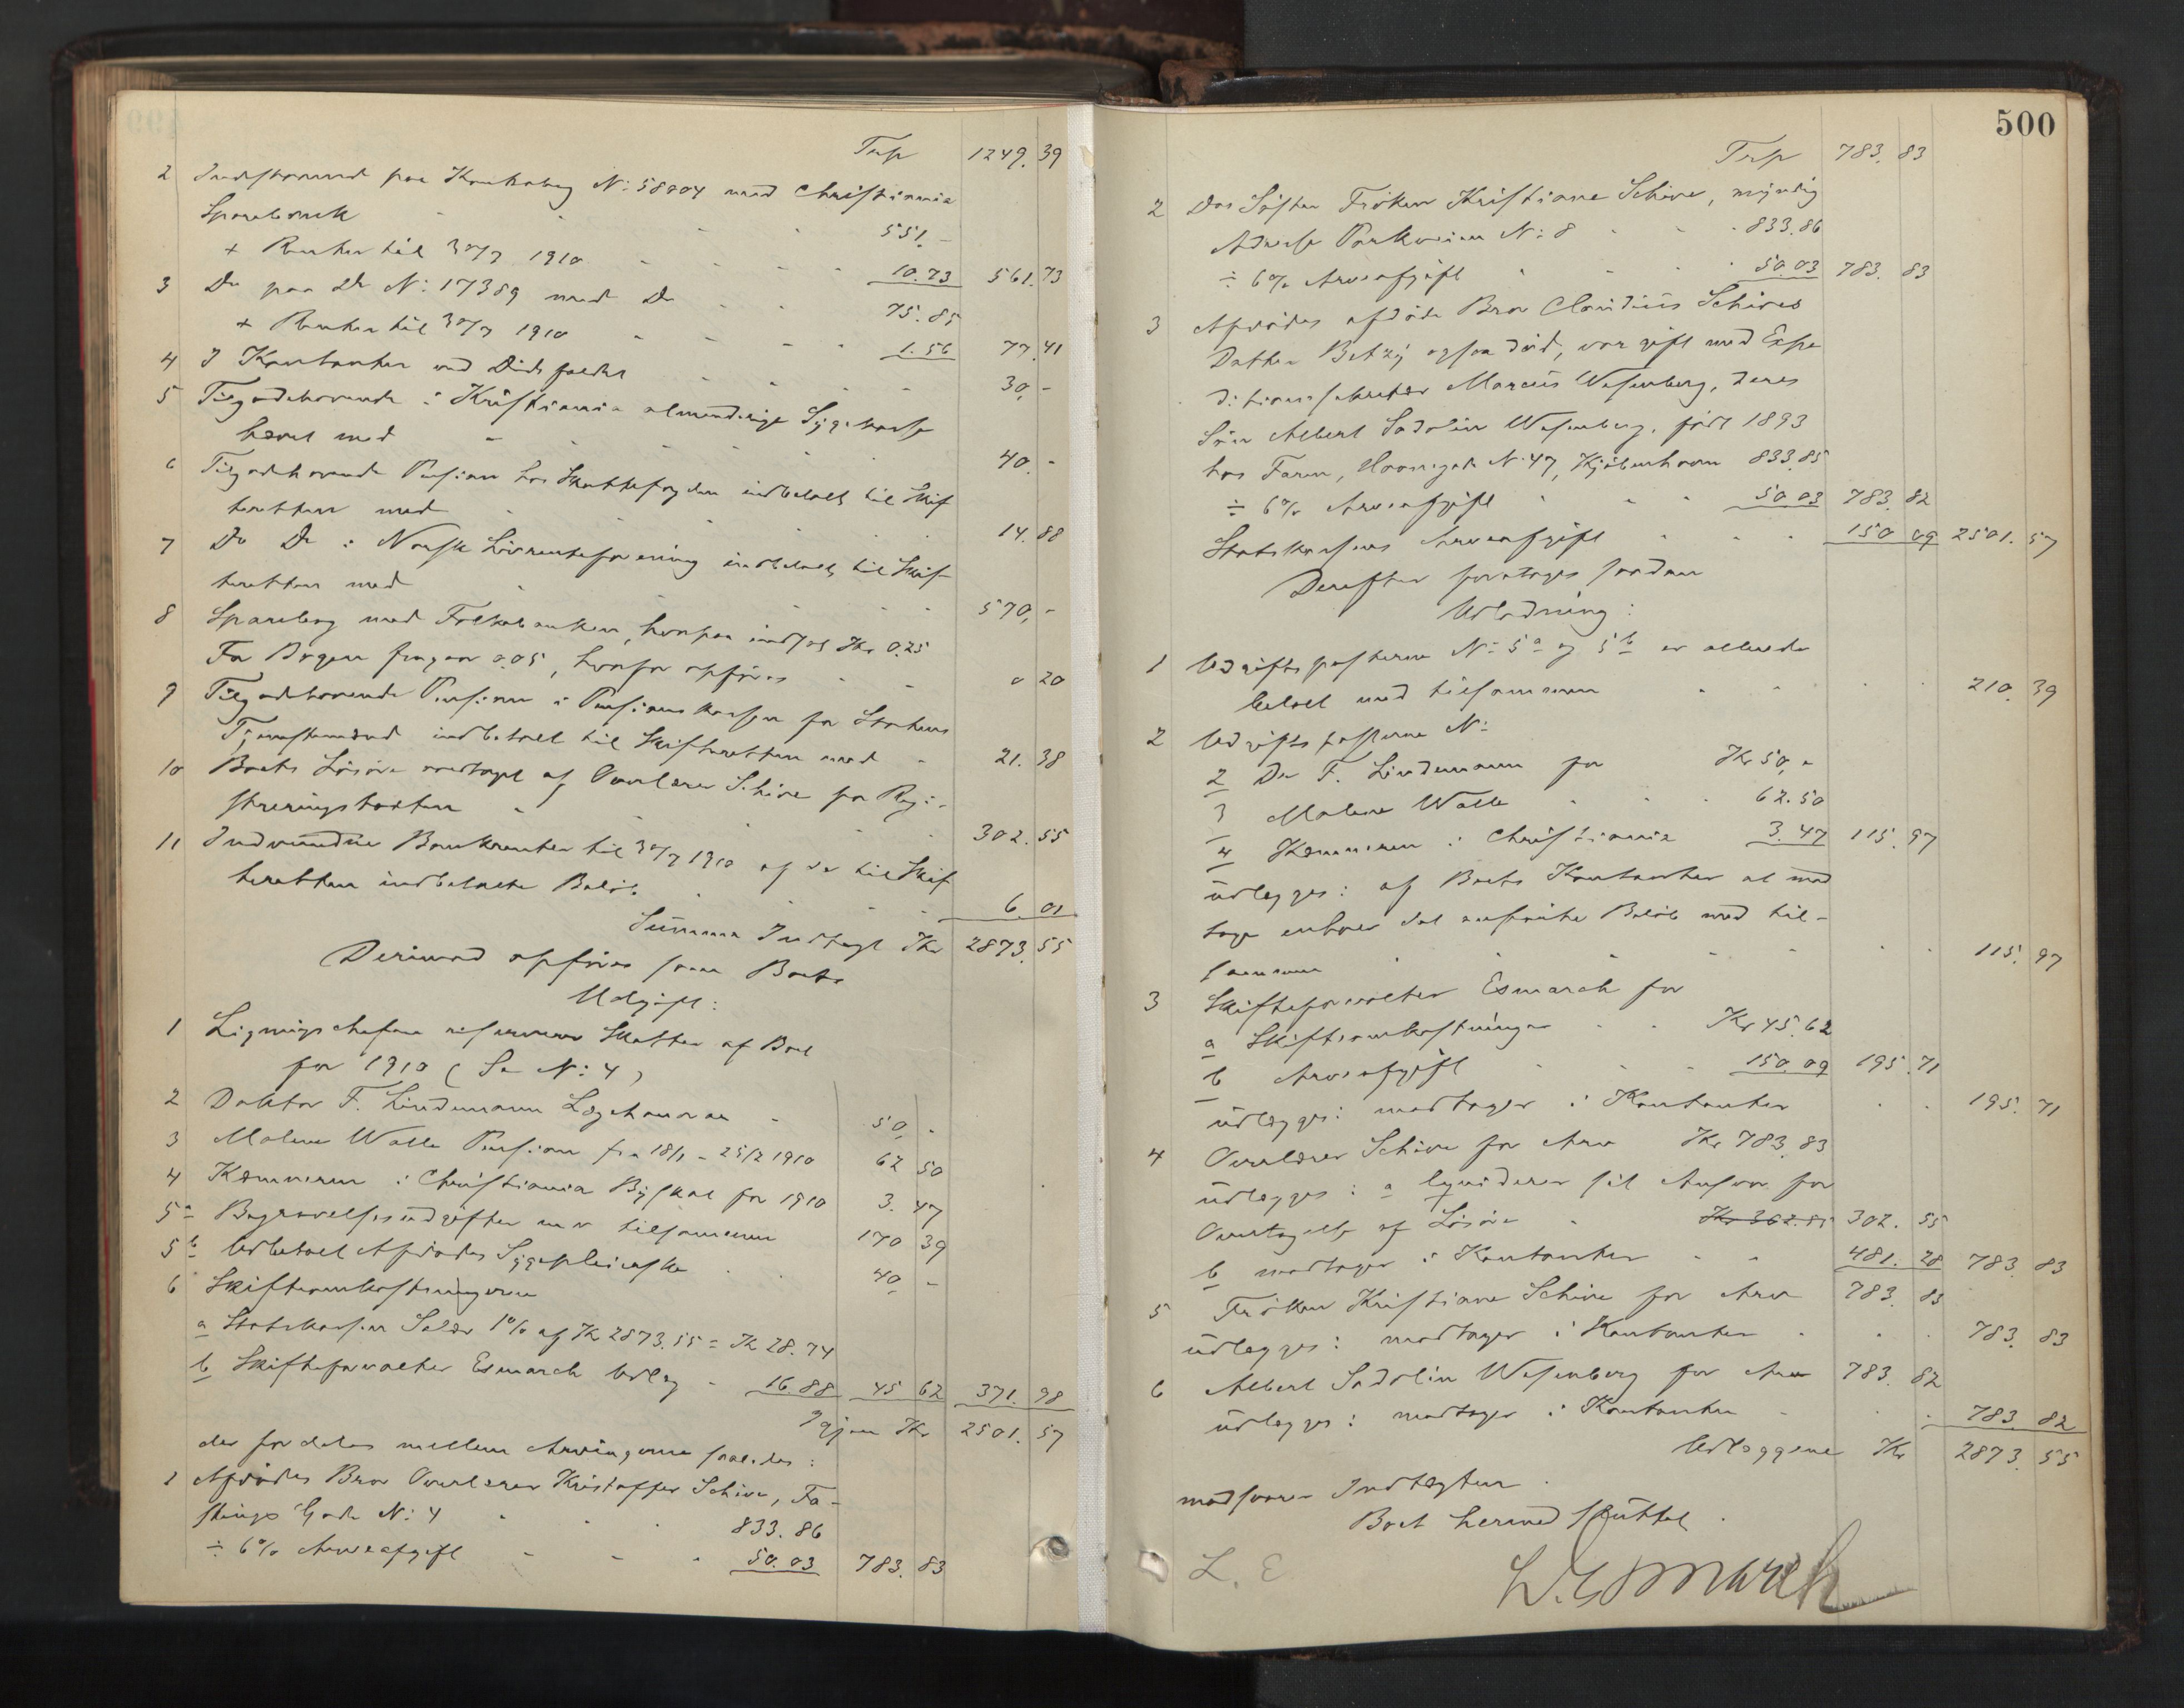 Trsp 1249. 39
2 Indestaaende paa Kontrabog No: 58804 med Christiania
Sparebank 551. -
+ Renter til 30/7 1910 10.73 561. 73
3 Do paa Do No: 17389 med Do 75.85
+ Renter til 30/7 1910 1.56 77. 41
4 I Kontanter ved Dödsfaldet 30, -
5 Tilgodehavende i Kristiania almindelige Sygekasse
hævet med 40. -
6 Tilgodehavende Pension hos Skattefogden indbetalt til Skif
teretten med 14. 88
7 Do Do i Norsk Livrenteforening indbetalt til Skif-
teretten med 570, -
8 Sparebog med Folkebanken, hvorpaa indstod Kr 0.25
For Bogen fragaar 0.05, hvorfor opföres 0 20
9 Tilgodehavende Pension i Pensionskassen for Statens
Tjenestemænd indbetalt til Skifteretten med 21. 38
10 Boets Lösöre modtaget af Overlærer Schive for Regi-
streringstaxten 302. 55
11 Indvundne Bankrenter til 30/7 1910 af de til Skif
teretten indbetalte Belöb 6. 01
Summa Indtægt Kr 2873. 55
Derimod opföres som Boets
Udgift:
1 Ligningschefen reserverer Skatter af Boet
for 1910 (Se No: 4)
2 Doktor F. Lindemann Lægehonorar 50, -
3 Malene Walle Pension fra 18/1 - 25/2 1910 62 50
4 Kæmneren i Christiania Byskat for 1910 3. 47
5a Begravelsesudgifter m v tilsammen 170 39
5b Udbetalt Afdödes Sygepleierske 40 -
6 Skifteomkostningerne
a Statskassen Salær 1% af Kr 2873.55 = Kr 28.74
b Skifteforvalter Esmarch Udlæg - 16.88 45 62 371. 98
Igjen Kr 2501. 57
der fordeles mellem Arvingerne saaledes:
1 Afdödes Bror Overlærer Kristoffer Schive, Fa-
stings Gade No: 4 833. 86
÷ 6% Arveafgift 50. 03 783. 83
500
Trsp 783. 83
2 Dos Söster Fröken Kristiane Schive, myndig
Adresse Parkveien No: 8 833.86
÷ 6% Arveafgift 50.03 783. 83
3 Afdödes afdöde Bror Claudius Schives
Datter Betzy ogsaa död, var gift med Expe
ditionssekretær Marcus Wesenberg, deres
Sön Albert Sadolin Wesenberg, födt 1893
hos Faren, No. 47, Kjöbenhavn 833.85
÷ 6% Arveafgift 50.03 783. 82
Statskassens Arveafgift 150 09 2501. 57
Derefter foretages saadan
Udlodning:
1 Udgiftsposterne No: 5a og 5b er allerede
betalt med tilsammen 210. 39
2 Udgiftsposterne No:
2 Dr F. Lindemann for Kr 50, -
3 Malene Walle 62.50
4 Kæmneren i Christiania 3.47 115. 97
udlægges: af Boets Kontanter at mod
tage enhver det anförte Belöb med til-
sammen 115. 97
3 Skifteforvalter Esmarch for
a Skifteomkostninger Kr 45.62
b Arveafgift 150.09 195. 71
udlægges: modtager i Kontanter 195. 71
4 Overlærer Schive for Arv Kr 783.83
udlægges: a likviderer sit Ansvar for
Overtagelse af Lösöre Kr 302.55 302. 55
b modtager i Kontanter 481. 28 783. 83
5 Fröken Kristiane Schive for Arv 783. 83
udlægges: modtager i Kontanter 783. 83
6 Albert Sadolin Wesenberg for Arv 783. 82
udlægges: modtager i Kontanter 783. 82
Udlæggene Kr 2873. 55
modsvarer Indtægten.
Boet hermed sluttet.
L. E L. Esmarch